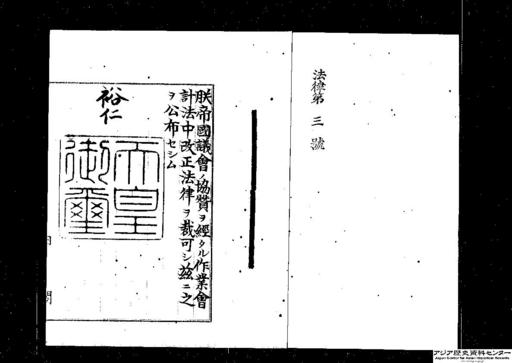 法律第三號
朕帝國議會ノ協贊ヲ經タル作業會
計法中改正法律ヲ裁可シ玆ニ之
ヲ公布セシム
裕仁
天皇
御璽
内閣
アジア歴史資料センター
Japan Center for Asian Historical Records